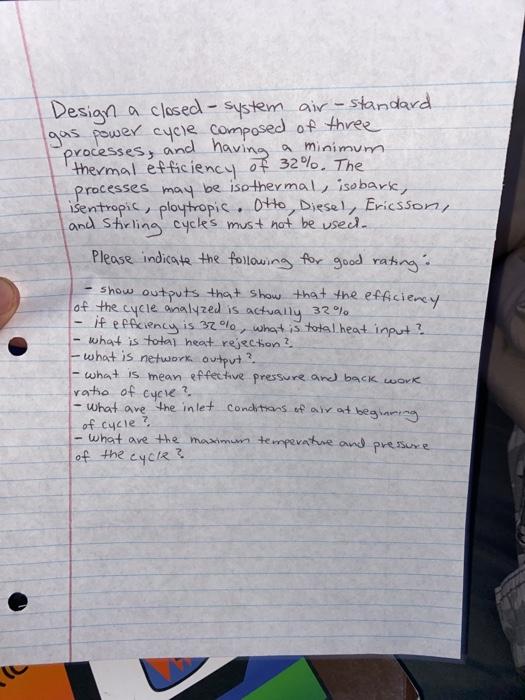 Design a closed - system air - standard
gas power cycle composed of three
processes, and having a minimum
thermal efficiency of 32%. The
processes may be isothermal, isobark,
isentropic, ploytropic. Otto, Diesel, Ericsson,
and Stirling cycles must not be used.
Please indicate the following for good rating:
- show outputs that show that the efficiency
of the cycle analyzed is actually 32%
- if effciency is 32%, what is total heat input?
- what is total heat rejection?
- what is network output?
- what is mean effective pressure and back work
ratio of cycle?
- what are the inlet conditions of air at beginning
of cycle?
- what are the maximum temperature and pressure
of the cycle?